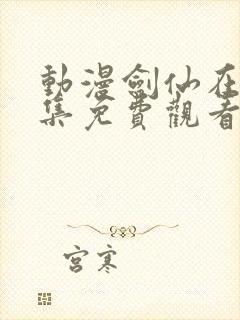 動漫劍仙在
集免費觀看
宮寒